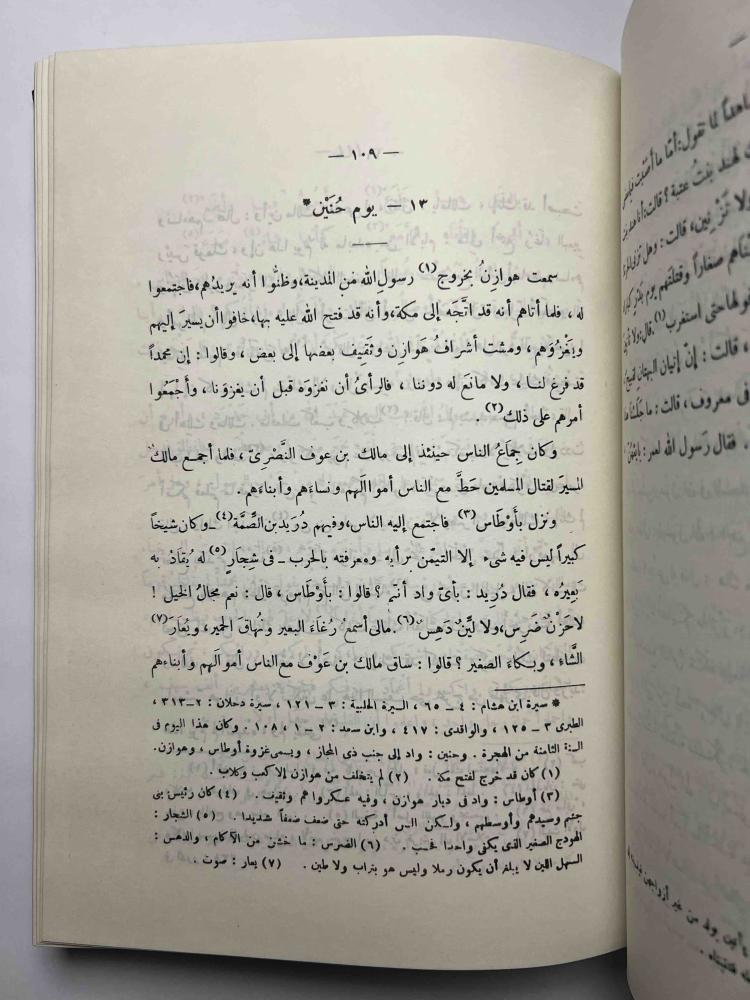 — ١٠٩ —
١٣ – يوم حُنَيْن*
سمعت هوازنُ بخروج(١) رسول الله من المدينة، وظنُّوا أنه يريدُهم، فاجتمعوا
له ، فلما أتاهم أنه قد اتَّجَه إلى مكة، وأنه قد فتح الله عليه بها، خافوا أن يسيرَ إليهم
ويَغْزُوَهم ، ومشت أشرافُ هَوازن وثَقِيف بعضها إلى بعض ، وقالوا : إن محمداً
قد فرغ لنـا ، ولا مانعَ له دوننا ، فالرأىُ أن نغزوَه قبل أن يغزونا ، وأجْمَعُوا
أمرهم على ذلك(٢) .
وكان جِماعُ الناس حينئذ إلى مالك بن عوف النَّصْرِىّ ، فلما أجمع مالك
المسيرَ لقتال المسلمين حَطَّ مع الناس أموالَهم ونساءَهم وأبناءَهم .
ونزل بأَوْطَاس(٣) فاجتمع إليه الناس، وفيهم دُرَيد بن الصِّمَّة(٤) – وكان شيخاً
كبيراً ليس فيه شىء إلا التيمّن برأيه ومعرفته بالحرب – فى شِجَارٍ(٥) له يُقادُ به
بَعِيرُه ، فقال دُرَيد : بأىّ واد أنتم ؟ قالوا : بأَوْطَاس ، قال : نعم مجالُ الخيل !
لا حَزْنٌ ضَرِس، ولا لَيِّنٌ دَهِس(٦) . مالى أسمعُ رُغَاءَ البعير ونُهَاقَ الحمير، ويُعَارَ(٧)
الشَّاء ، وبكاءَ الصغير ؟ قالوا : ساق مالك بن عَوْف مع الناس أموالَهم وأبناءهم
* سيرة ابن هشام : ٤ – ٦٥ ، السيرة الحلبية : ٣ – ١٢١ ، سيرة دحلان : ٢ – ٣١٣ ،
الطبرى ٣ – ١٢٥ ، والواقدى : ٤١٧ ، وابن سعد : ٢ – ١ ، ١٠٨ . وكان هذا اليوم فى
السنة الثامنة من الهجرة . وحنين : واد إلى جنب ذى المجاز ، ويسمى غزوة أوطاس ، وهوازن.
(١) كان قد خرج لفتح مكة . (٢) لم يتخلف من هوازن إلا كعب وكلاب .
(٣) أوطاس : واد فى ديار هوازن ، وفيه عسكروا هم وثقيف . (٤) كان رئيس بنى
جشم وسيدهم وأوسطهم ، ولكن السن أدركته حتى ضعف ضعفاً شديدا . (٥) الشجار :
الهودج الصغير الذى يكفى واحدا فحسب . (٦) الضرس : ما خشن من الآكام ، والدهس :
السهل اللين لا يبلغ أن يكون رملا وليس هو بتراب ولا طين . (٧) يعار : صوت .
لما تقول: أمّا ما أصبت
بنتُ عتبة ؟ قالت: أنا هند بنت
ولا تَزْنِين، قالت : وهل تزنى
صغاراً وقتلتَهم يوم بدر كباراً
حتى استغرب(١). قال: ولا
، قالت : إنّ إتيان البهتان لقبيح
فى معروف، قالت : ما جلسنا
. فقال رسول الله لعمر : بايعْهُنّ